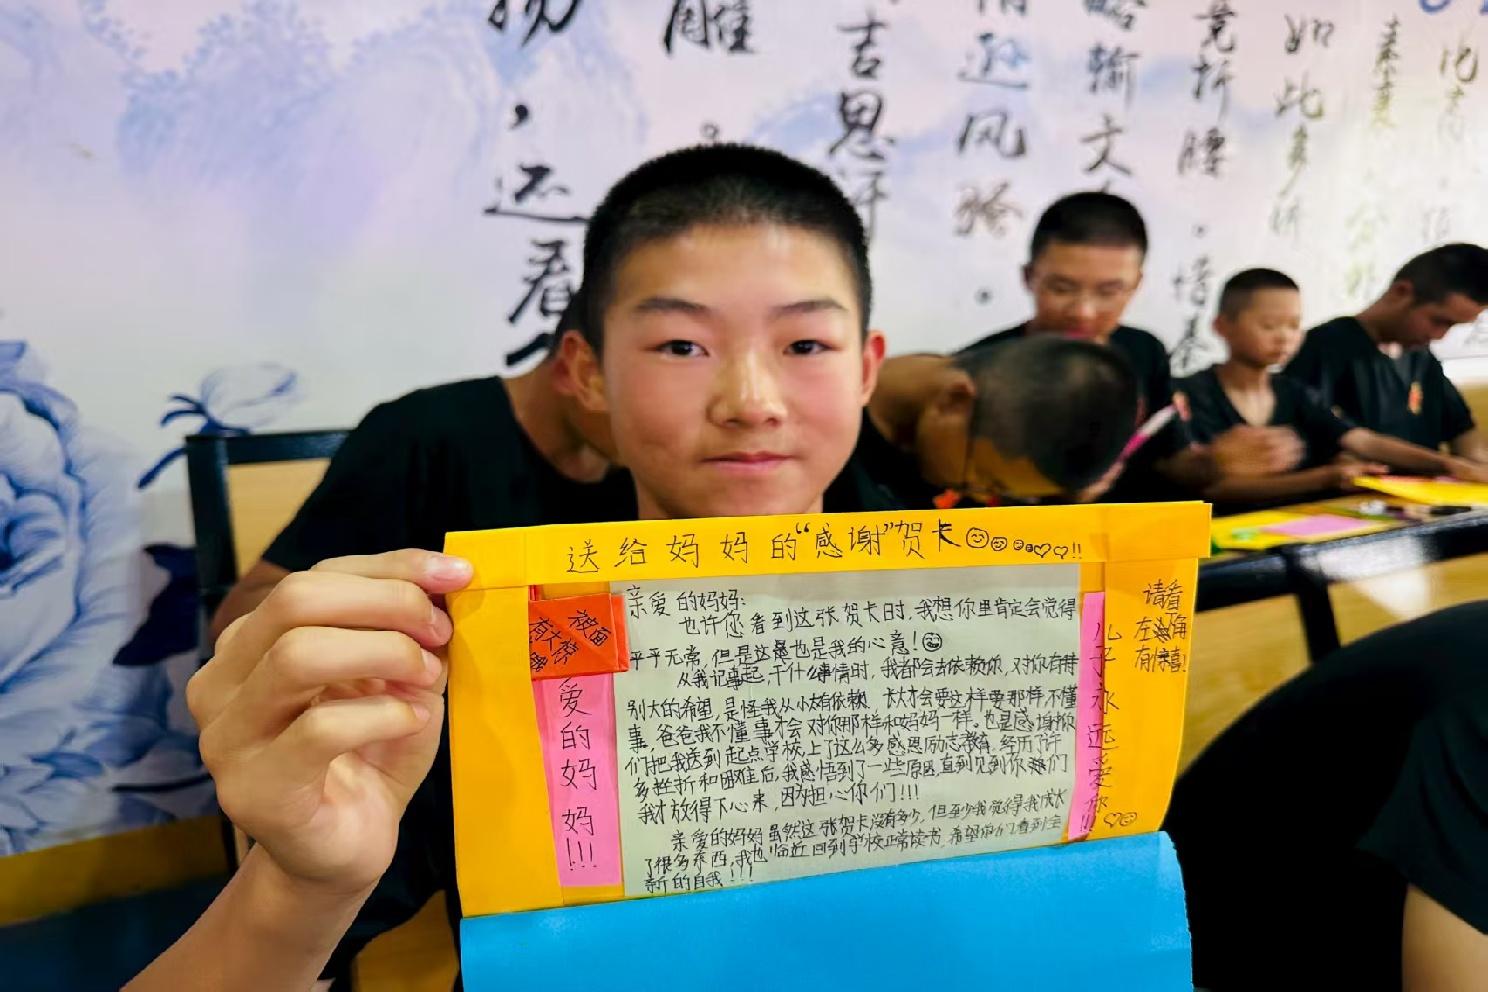 扬
，还看
雕
吉思汗
情逊风骚。
略输文
竞折腰。惜秦
如此多娇
素裹
送给妈妈的“感谢”贺卡
亲爱的妈妈:
也许您看到这张贺卡时,我想你里肯定会觉得
平平无常,但是这是也是我的心意!
从我记事起,干什么事情时,我都会去依赖你,对你有特
别大的希望,是怪我从小有依赖,长大才会要这样要那样不懂
事,爸爸我不懂事才会对你那样和妈妈一样。也是感谢你
们把我送到起点学校,上了这么多感恩励志教育,经历了许
多挫折和困难后,我感悟到了一些原因,直到见到你们
我才放得下心来,因为担心你们!!!
亲爱的妈妈虽然这张贺卡没有多少,但至少我觉得我成长
了很多东西,我也临近回到学校正常读书,希望你们看到全
新的自我!!!
爱的妈妈!!!
儿子永远爱你!!
请看
左角
有惊喜!